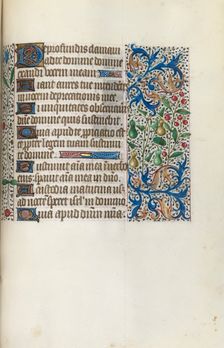 De profundis clamaui
ad te domine domine
exaudi vocem meam
Fiant aures tue intendentes
in vocem deprecationis mee
Si iniquitates obseruaueris
dñe domine quis sustinebit
Quia apud te propiciatio est
et propter legem tuam sustinui
te domine
Sustinuit aīa mea in verbo
eius sperauit aīa mea in dño
A custodia matutina us
ad noctem speret isrl in domino
Quia apud dñm mīa